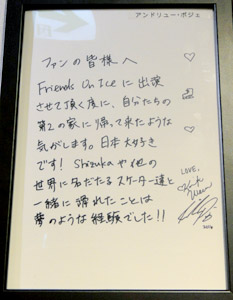 アンドリュー・ポジェ
ファンの皆様へ
Friends On Ice に出演
させて頂く度に、自分たちの
第2の家に帰って来たような
気がします。日本大好き
です! Shizukaや他の
世界に名だたるスケーター達と
一緒に滑れたことは
夢のような経験でした!!
LOVE,